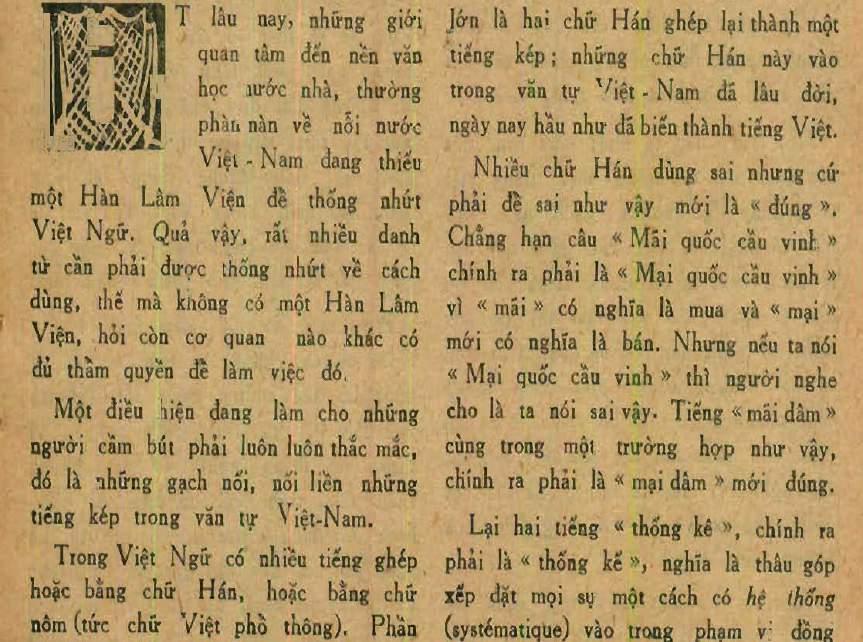 TỪ lâu nay, những giới
quan tâm đến nền văn
học nước nhà, thường
phàn nàn về nỗi nước
Việt - Nam đang thiếu
một Hàn Lâm Viện để thống nhứt
Việt Ngữ. Quả vậy, rất nhiều danh
từ cần phải được thống nhứt về cách
dùng, thế mà không có một Hàn Lâm
Viện, hỏi còn cơ quan nào khác có
đủ thẩm quyền để làm việc đó.
Một điều hiện đang làm cho những
người cầm bút phải luôn luôn thắc mắc,
đó là những gạch nối, nối liền những
tiếng kép trong văn tự Việt-Nam.
Trong Việt Ngữ có nhiều tiếng ghép
hoặc bằng chữ Hán, hoặc bằng chữ
nôm (tức chữ Việt phổ thông). Phần
lớn là hai chữ Hán ghép lại thành một
tiếng kép ; những chữ Hán này vào
trong văn tự Việt - Nam đã lâu đời,
ngày nay hầu như đã biến thành tiếng Việt.
Nhiều chữ Hán dùng sai nhưng cứ
phải để sai như vậy mới là « đúng ».
Chẳng hạn câu « Mãi quốc cầu vinh »
chính ra phải là « Mại quốc cầu vinh »
vì « mãi » có nghĩa là mua và « mại »
mới có nghĩa là bán. Nhưng nếu ta nói
« Mại quốc cầu vinh » thì người nghe
cho là ta nói sai vậy. Tiếng « mãi dâm »
cùng trong một trường hợp như vậy,
chính ra phải là « mại dâm » mới đúng.
Lại hai tiếng « thống kê », chính ra
phải là « thống kế », nghĩa là thâu góp
xếp đặt mọi sự một cách có hệ thống
(systématique) vào trong phạm vi đồng